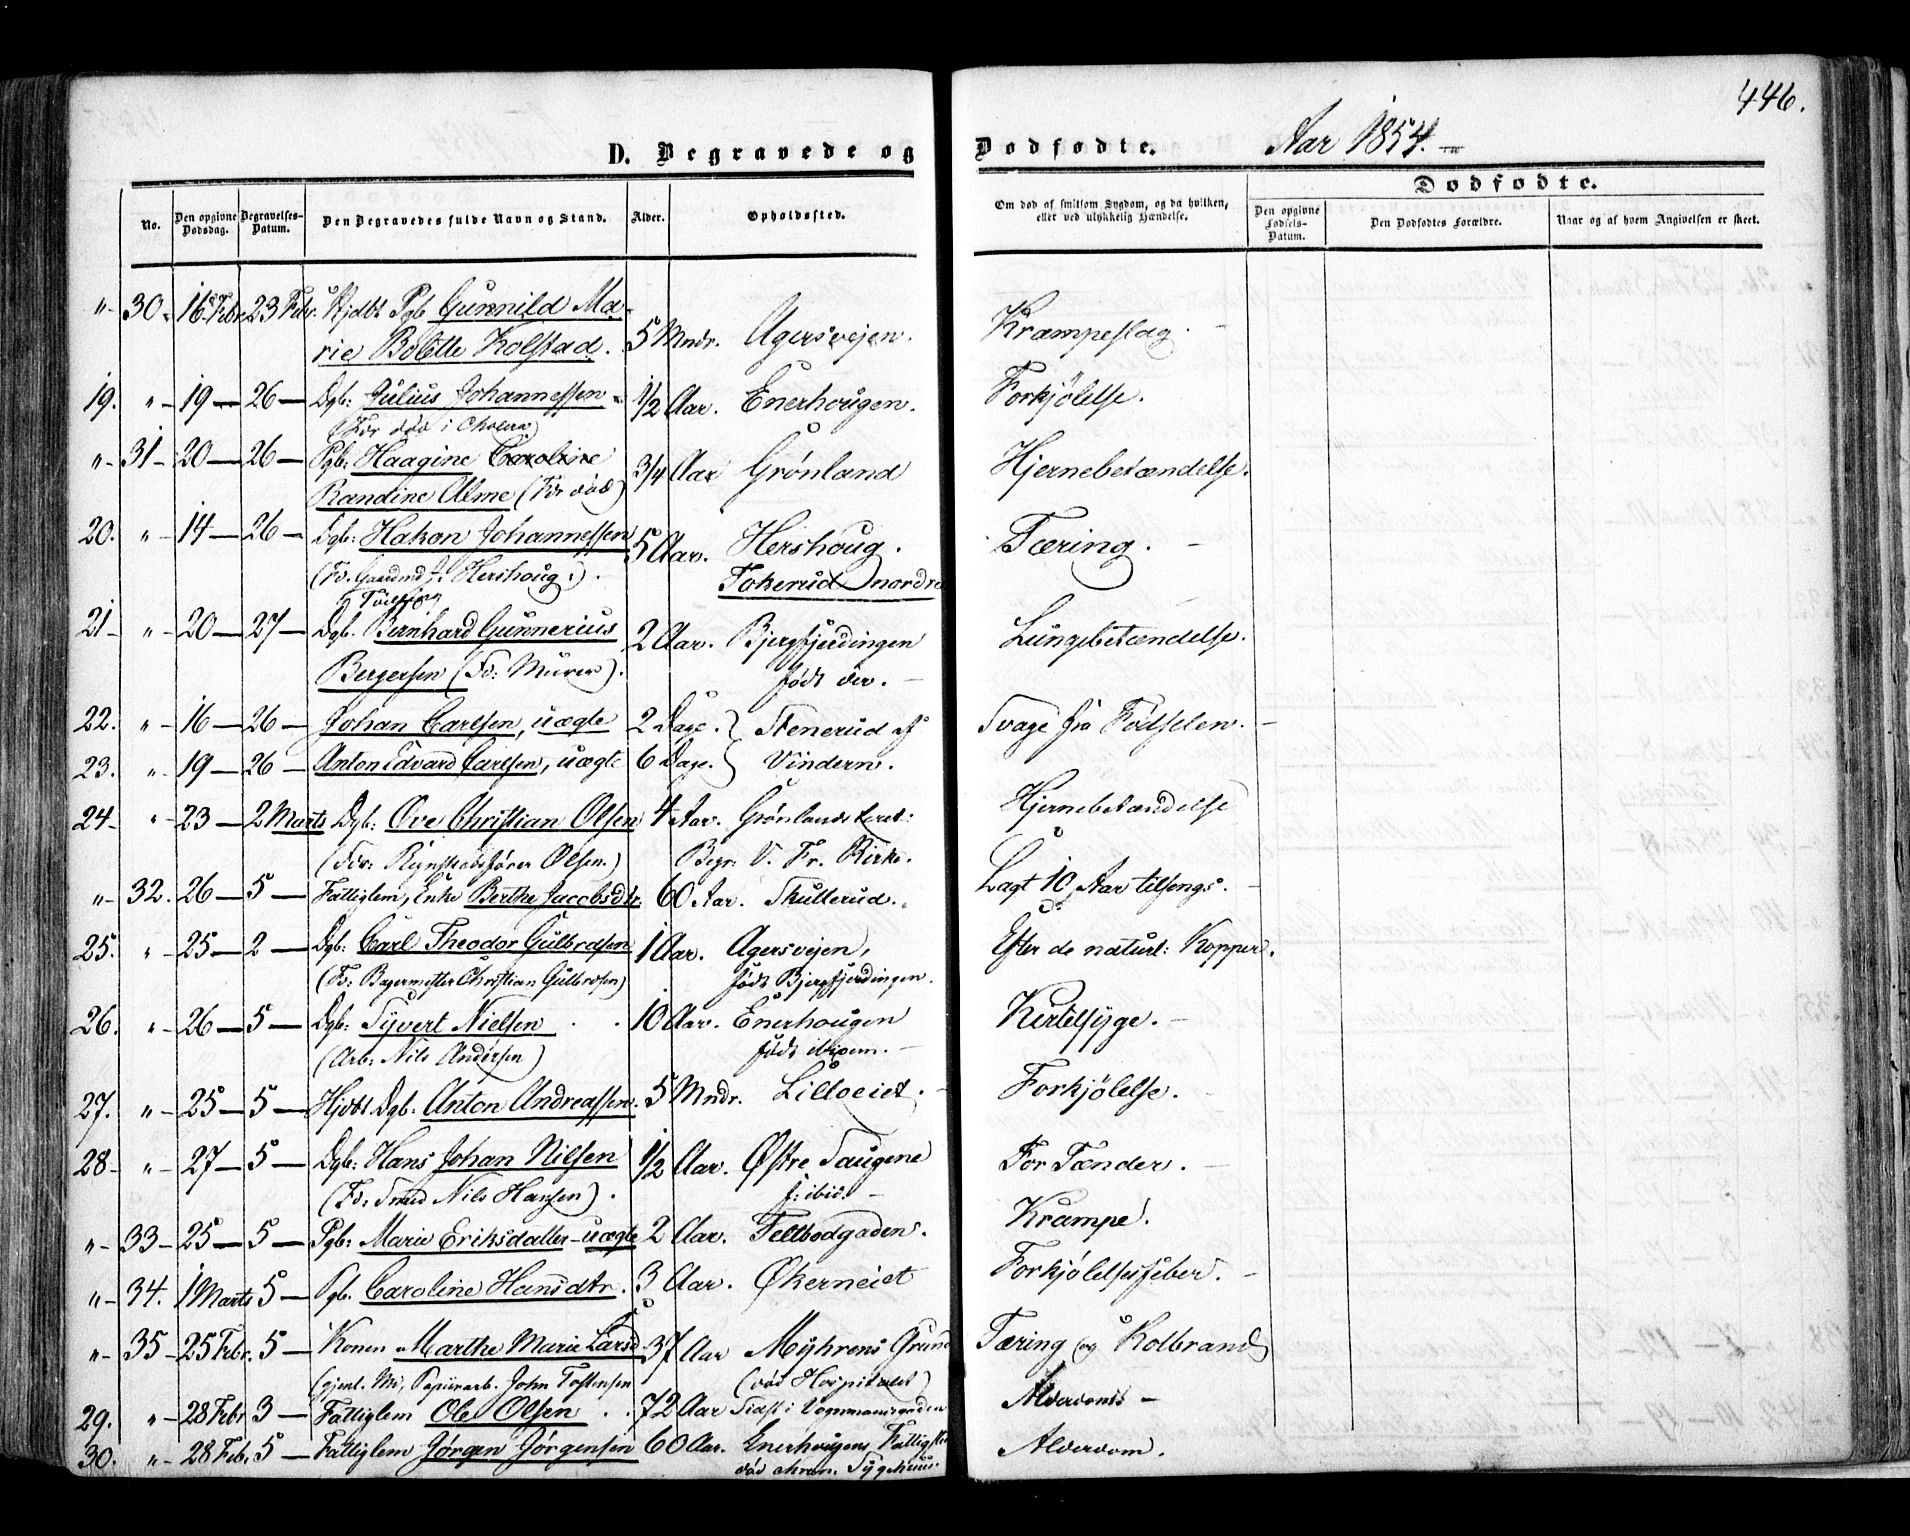 446.
D. Begravede og Dodfodte. Aar 1854.
Dodfodte.
No. Den opgivne Dodsdag. Begravelses-Datum. Den Begravedes fulde Navn og Stand. Alder. Opholdssted. Om dod af smitsom Sygdom, og da hvilken, eller ved ulykkelig Hændelse. Den opgivne Fodsels-Datum. Den Dodfodtes Forældre. Naar og af hvem Angivelsen er skeet.
"- 30- 16 Febr. 23 Febr. Hjdbt Pgb Gunnild Ma-
rie Bolette Kolstad. 5 Mndr. Agersvejen. Krampeslag.
19. " - 19 - 26 - Dgb: Julius Johannessen 1/2 Aar. Enerhougen. Forkjølelse.
(Fdr død i Cholera)
"- 31- 20 - 26 - Pgb: Haagine Caroline
Randine Alme (Fdr død) 3/4 Aar Grønland Hjernebetændelse.
20. " - 14 - 26 - Dgb: Hakon Johannessen 5 Aar. Hershoug. Tæring.
(Fd. Gaardmd J: Hershoug:). Tokerud nordre
21- " - 20 - 27 - Dgb. Bernhard Gunnerius 2 Aar. Bjergfjerdingen Lungebetændelse.
Bergersen (Fd: Murer). født der.
22. " - 16 - 26 - Johan Carlsen, uægte 2 Dage. } Stenerud af Svage fra Fødselen.
23. " - 19 - 26 - Anton Edvard Carlsen, uægte 6 Dage. } Vindern.
24- " - 23 - 2 Marts Dgb: Ove Christian Olsen 4 Aar. Grønlandsleret: Hjernebetændelse
(Fdr: Olsen.) Begr: V. Fr. Kirke.
"- 32. 26 - 5 - Fattiglem, Enke Berthe Jacobsdtr. 60 Aar. Skullerud. Lagt 10 Aar tilsengs.
25. " - 25 - 2 - Dgb: Carl Theodor Gulbrdsen 1 Aar. Agersvejen, Efter de naturl: Kopper.
(Fd: Bagermester Christian Gulbrdsen) født Bjergfjerdingen.
26. " - 26 - 5 - Dgb: Syvert Nielsen 10 Aar. Enerhougen Kirtelsyge.
(Arb: Nils Andersen) født ibidem.
27. " - 25 - 5 - Hjdbt Dgb: Anton Andreassen. 5 Mndr. Lilloeiet. Forkjølelse.
28- " - 27 - 5 - Dgb: Hans Johan Nilsen 1/2 Aar. Østre Saugene For Tænder.
(Fd: Smed Nils Hansen). f: ibid.
"- 33- 25 - 5 - Pgb: Marie Eriksdatter - uægte 2 Aar. Feltbodgaden. Krampe.
"- 34. 1 Marts 5 - Pgb. Caroline Hansdtr. 3 Aar. Økerneiet Forkjølelsesfeber.
"- 35- 25 Febr. 5 - Konen Marthe Marie Larsd 37 Aar Myhrens Grund Tæring og Kolbrand
(gjenl. M, Papiirarb. John Tostensen (død Hospitalet)
29. " - 28 Febr 3 - Fattiglem Ole Olsen 72 Aar Sidst i Vognmandsgaden Alderdom
30. " - 28 Feb. 5 - Fattiglem Jørgen Jørgensen 60 Aar. Enerhougens Alderdom.
død Sygehuus